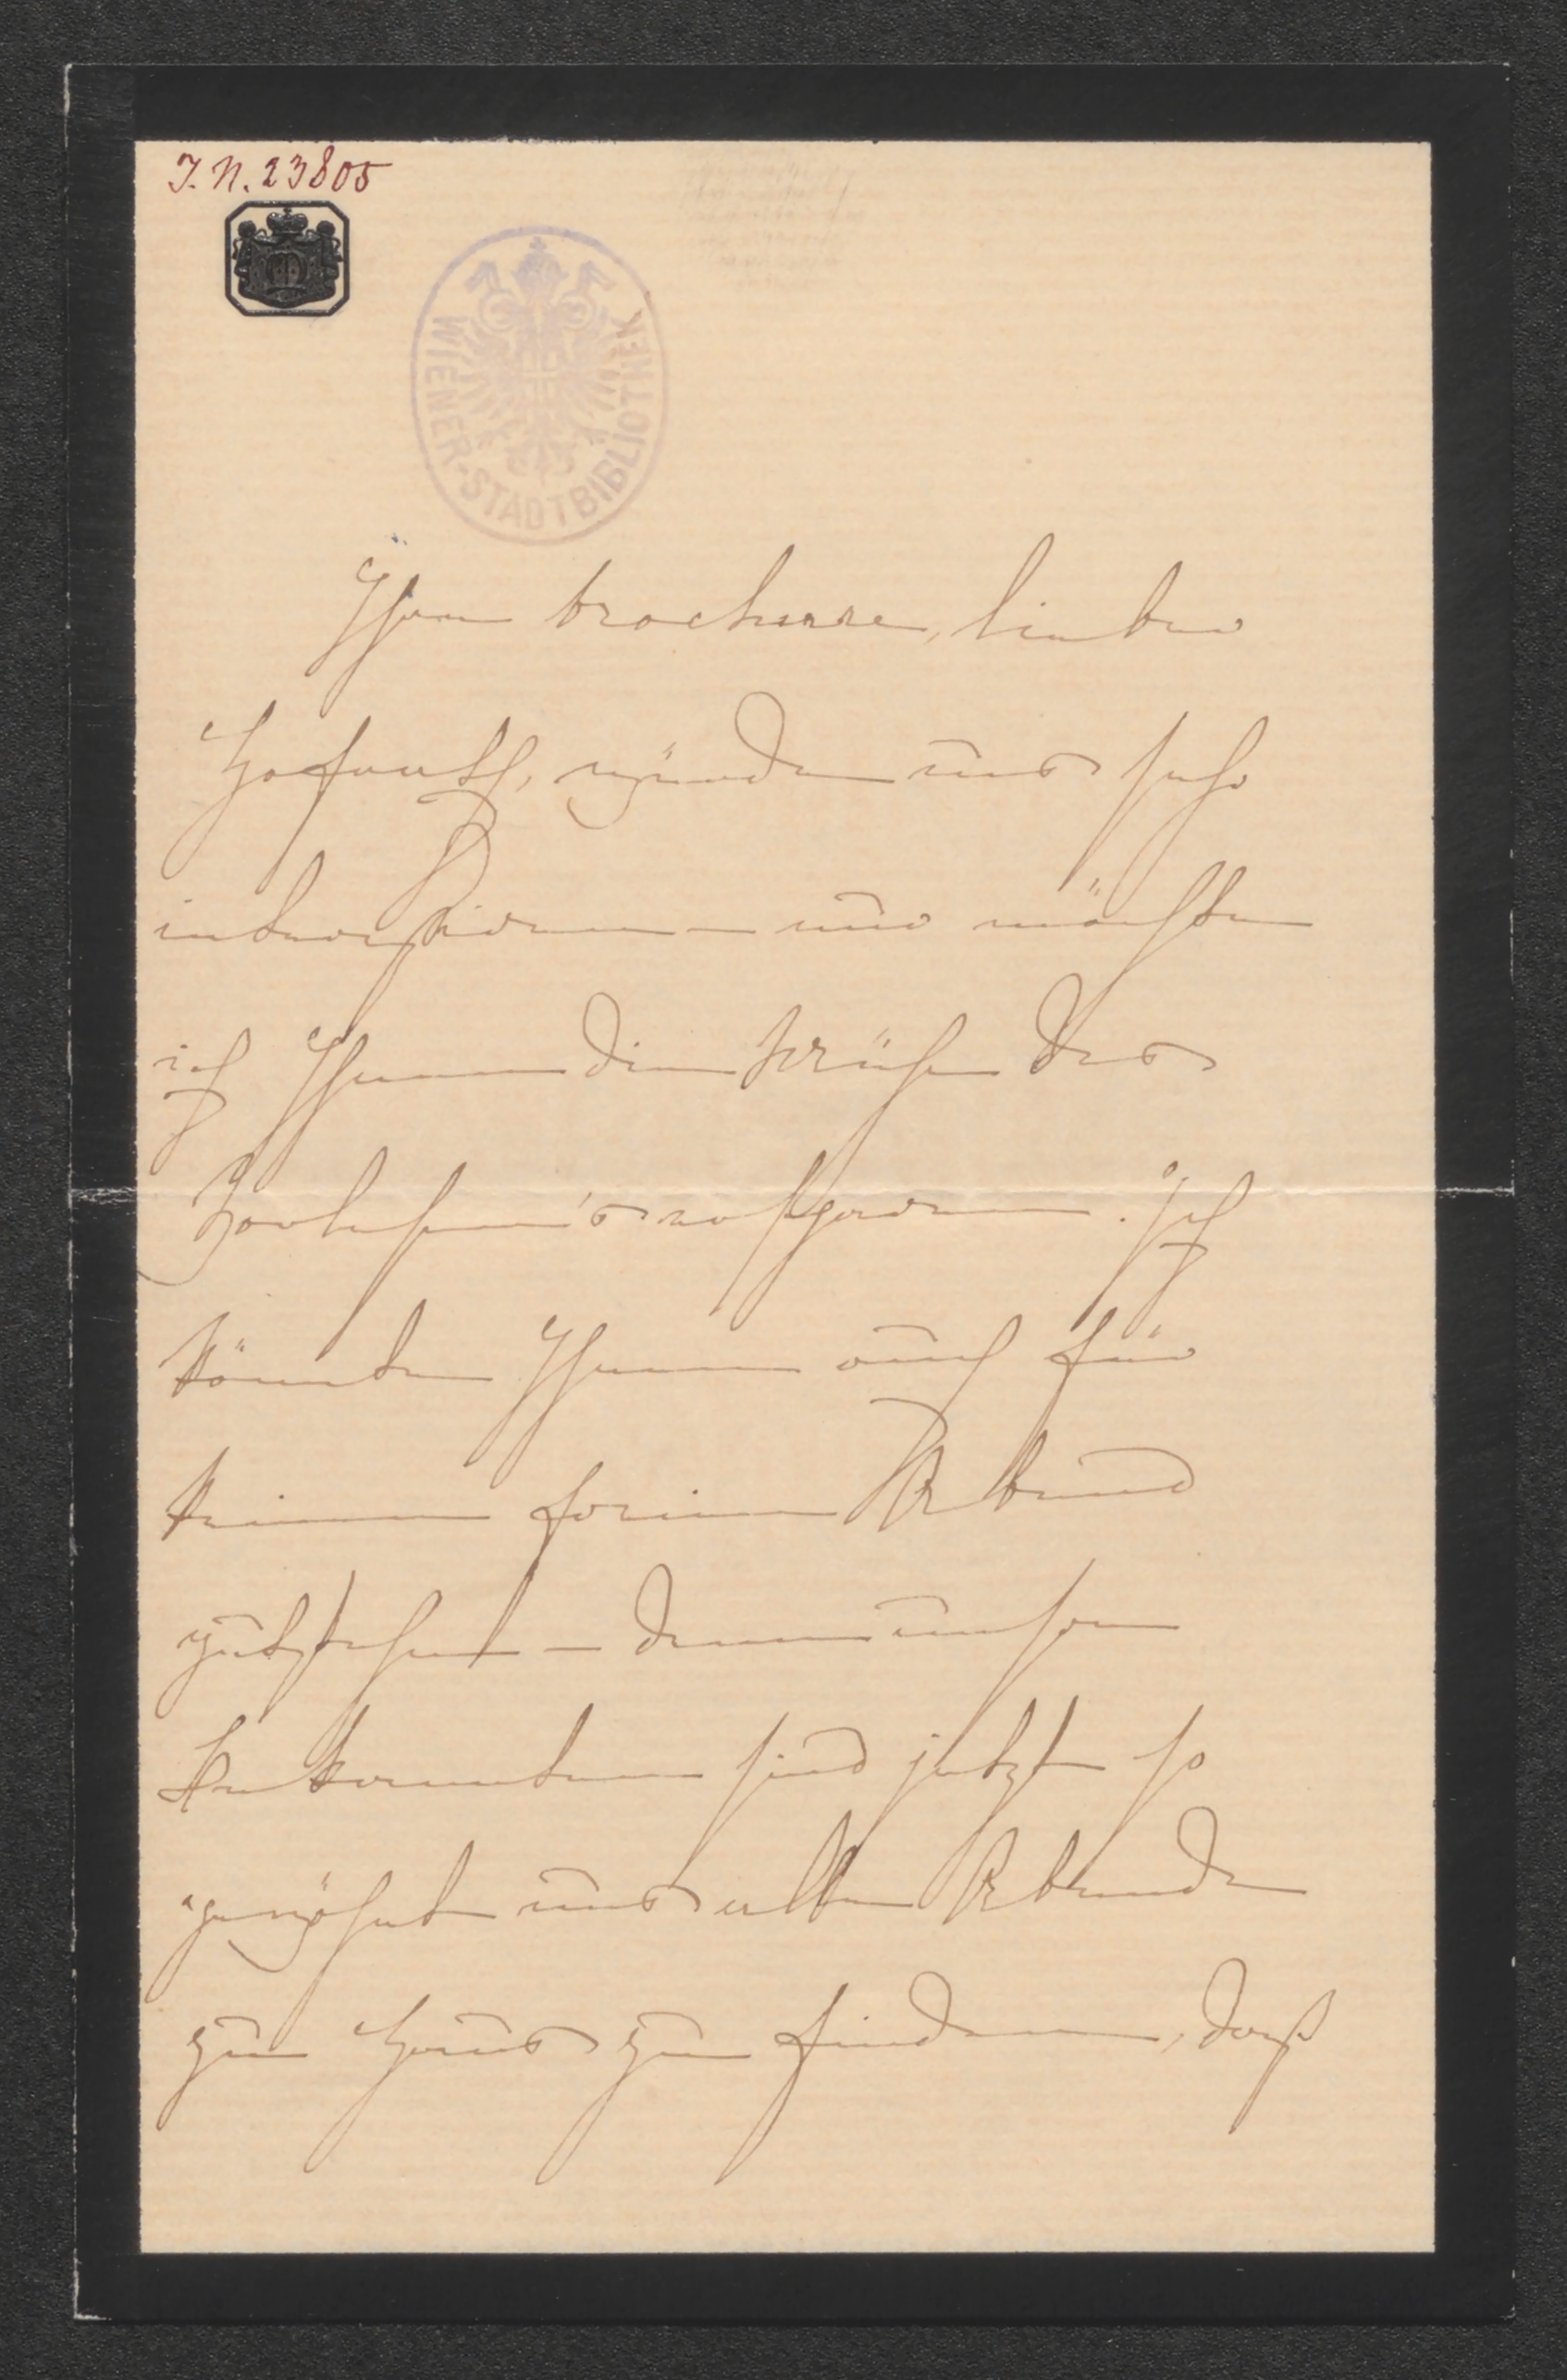 J. N. 23805
WIENER-STADTBIBLIOTHEK
Ihre brochure, lieber
Hofrath, würde uns sehr
interessieren – nur möchte
ich Ihnen die Mühe des
Vorlesen's ersparen. Ich
könnte Ihnen auch für
keinen freien Abend
gutstehen – denn unsere
Bekannten sind jetzt so
gewöhnt uns alle Abende
zu Haus zu finden, daß